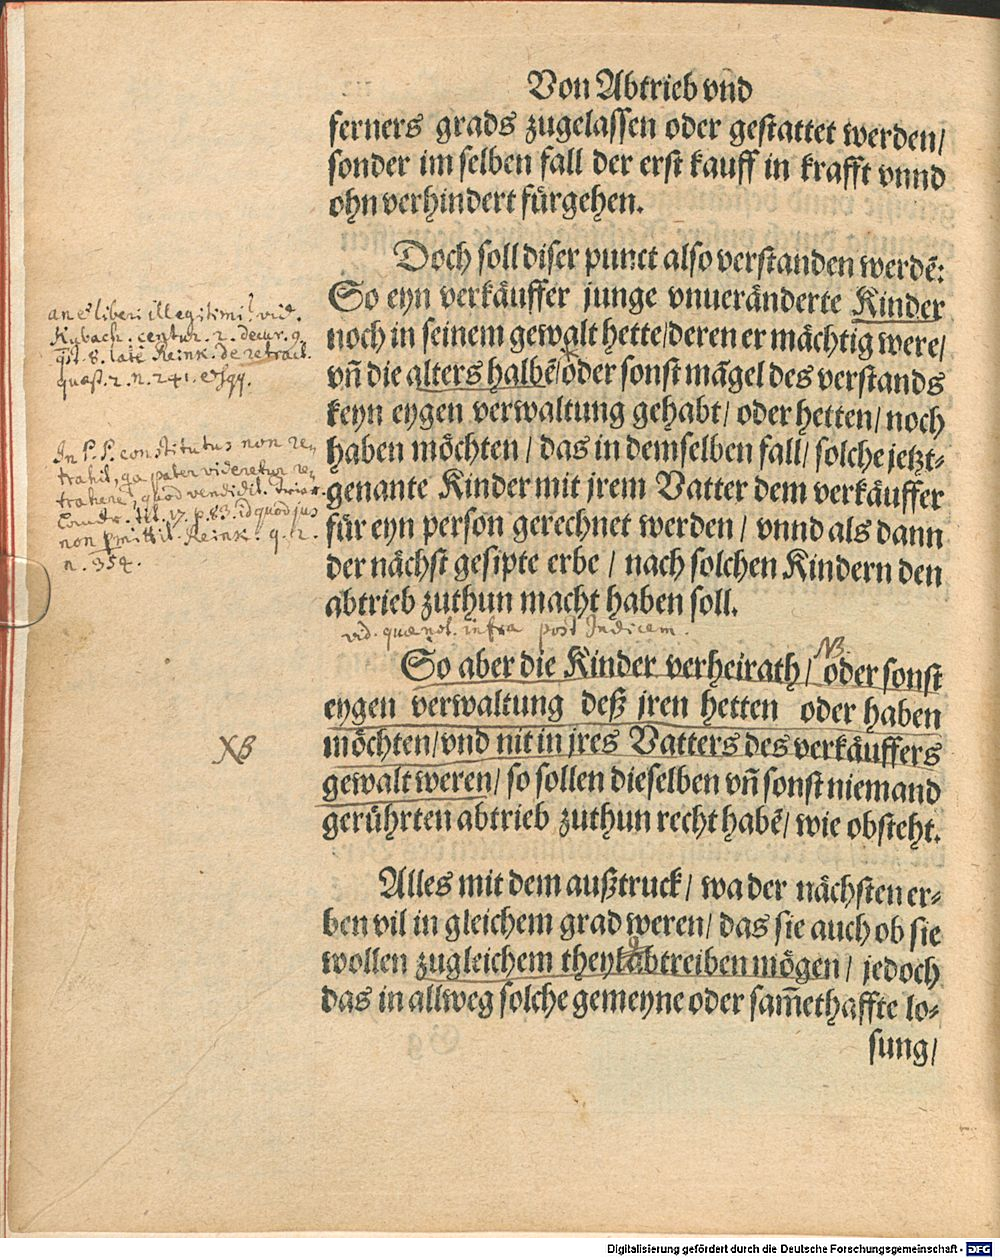 Von Abtrieb vnd
ferners grads zugelassen oder gestattet werden/
sonder im selben fall der erst kauff in krafft vnnd
ohn verhindert fürgehen.
Doch soll diser punct also verstanden werdē:
So eyn verkäuffer junge vnueränderte Kinder
noch in seinem gewalt hette/deren er mächtig were/
vñ die alters halbē/oder sonst mägel des verstands
keyn eygen verwaltung gehabt/ oder hetten/ noch
haben möchten/ das in demselben fall/ solche jetzt-
genante Kinder mit jrem Vatter dem verkäuffer
für eyn person gerechnet werden/ vnnd als dann
der nächst gesipte erbe/ nach solchen Kindern den
abtrieb zuthun macht haben soll.
an et liberi illegitimi? vid.
Rubach. centur. 2. decur. 9.
8. late Reink. de retract.
quæst. 2. n. 241. & sqq.
In P. P. constitutus non re-
trahit, qa pater videretur re-
trahere, quod vendidit.
tit. 17. p. 83. id quod jus
non pmittit. Reink. q. 2.
n. 354.
vid. quæ not. infra post Indicem.
NB.
So aber die Kinder verheirath/ oder sonst
eygen verwaltung deß jren hetten oder haben
möchten/vnd nit in jres Vatters des verkäuffers
gewalt weren/ so sollen dieselben vñ sonst niemand
gerührten abtrieb zuthun recht habē/ wie obsteht.
NB
Alles mit dem außtruck/ wa der nächsten er-
ben vil in gleichem grad weren/ das sie auch ob sie
wollen zugleichem theyl abtreiben mögen/ jedoch
das in allweg solche gemeyne oder sam̄ethaffte lo-
sung/
Digitalisierung gefördert durch die Deutsche Forschungsgemeinschaft - DFG